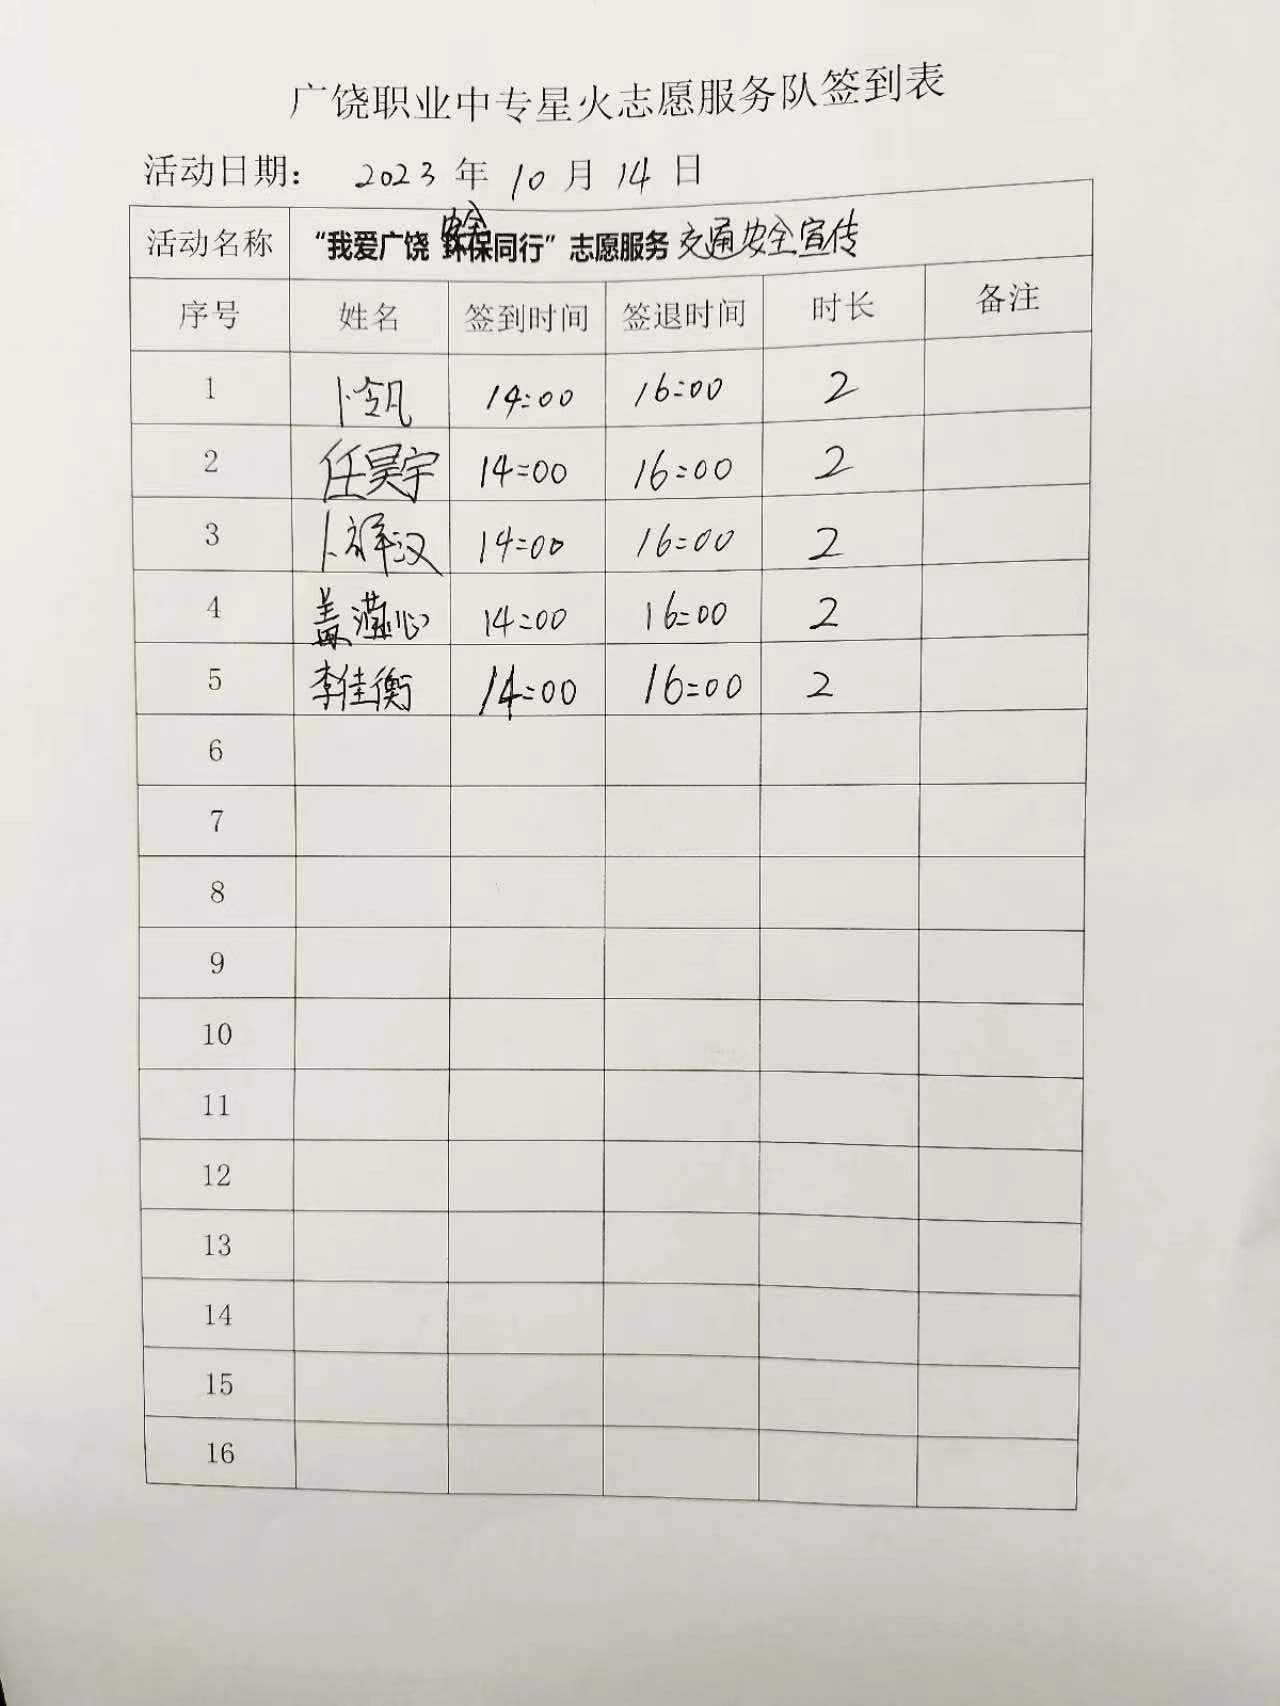 广饶职业中专星火志愿服务队签到表
活动日期： 2023 年 10 月 14 日
安全
活动名称 “我爱广饶 环保同行”志愿服务 交通安全宣传
序号 姓名 签到时间 签退时间 时长 备注
1 卜令凡 14:00 16:00 2
2 任昊宇 14:00 16:00 2
3 卜祥汉 14:00 16:00 2
4 盖 心 14:00 16:00 2
5 李佳衡 14:00 16:00 2
6
7
8
9
10
11
12
13
14
15
16